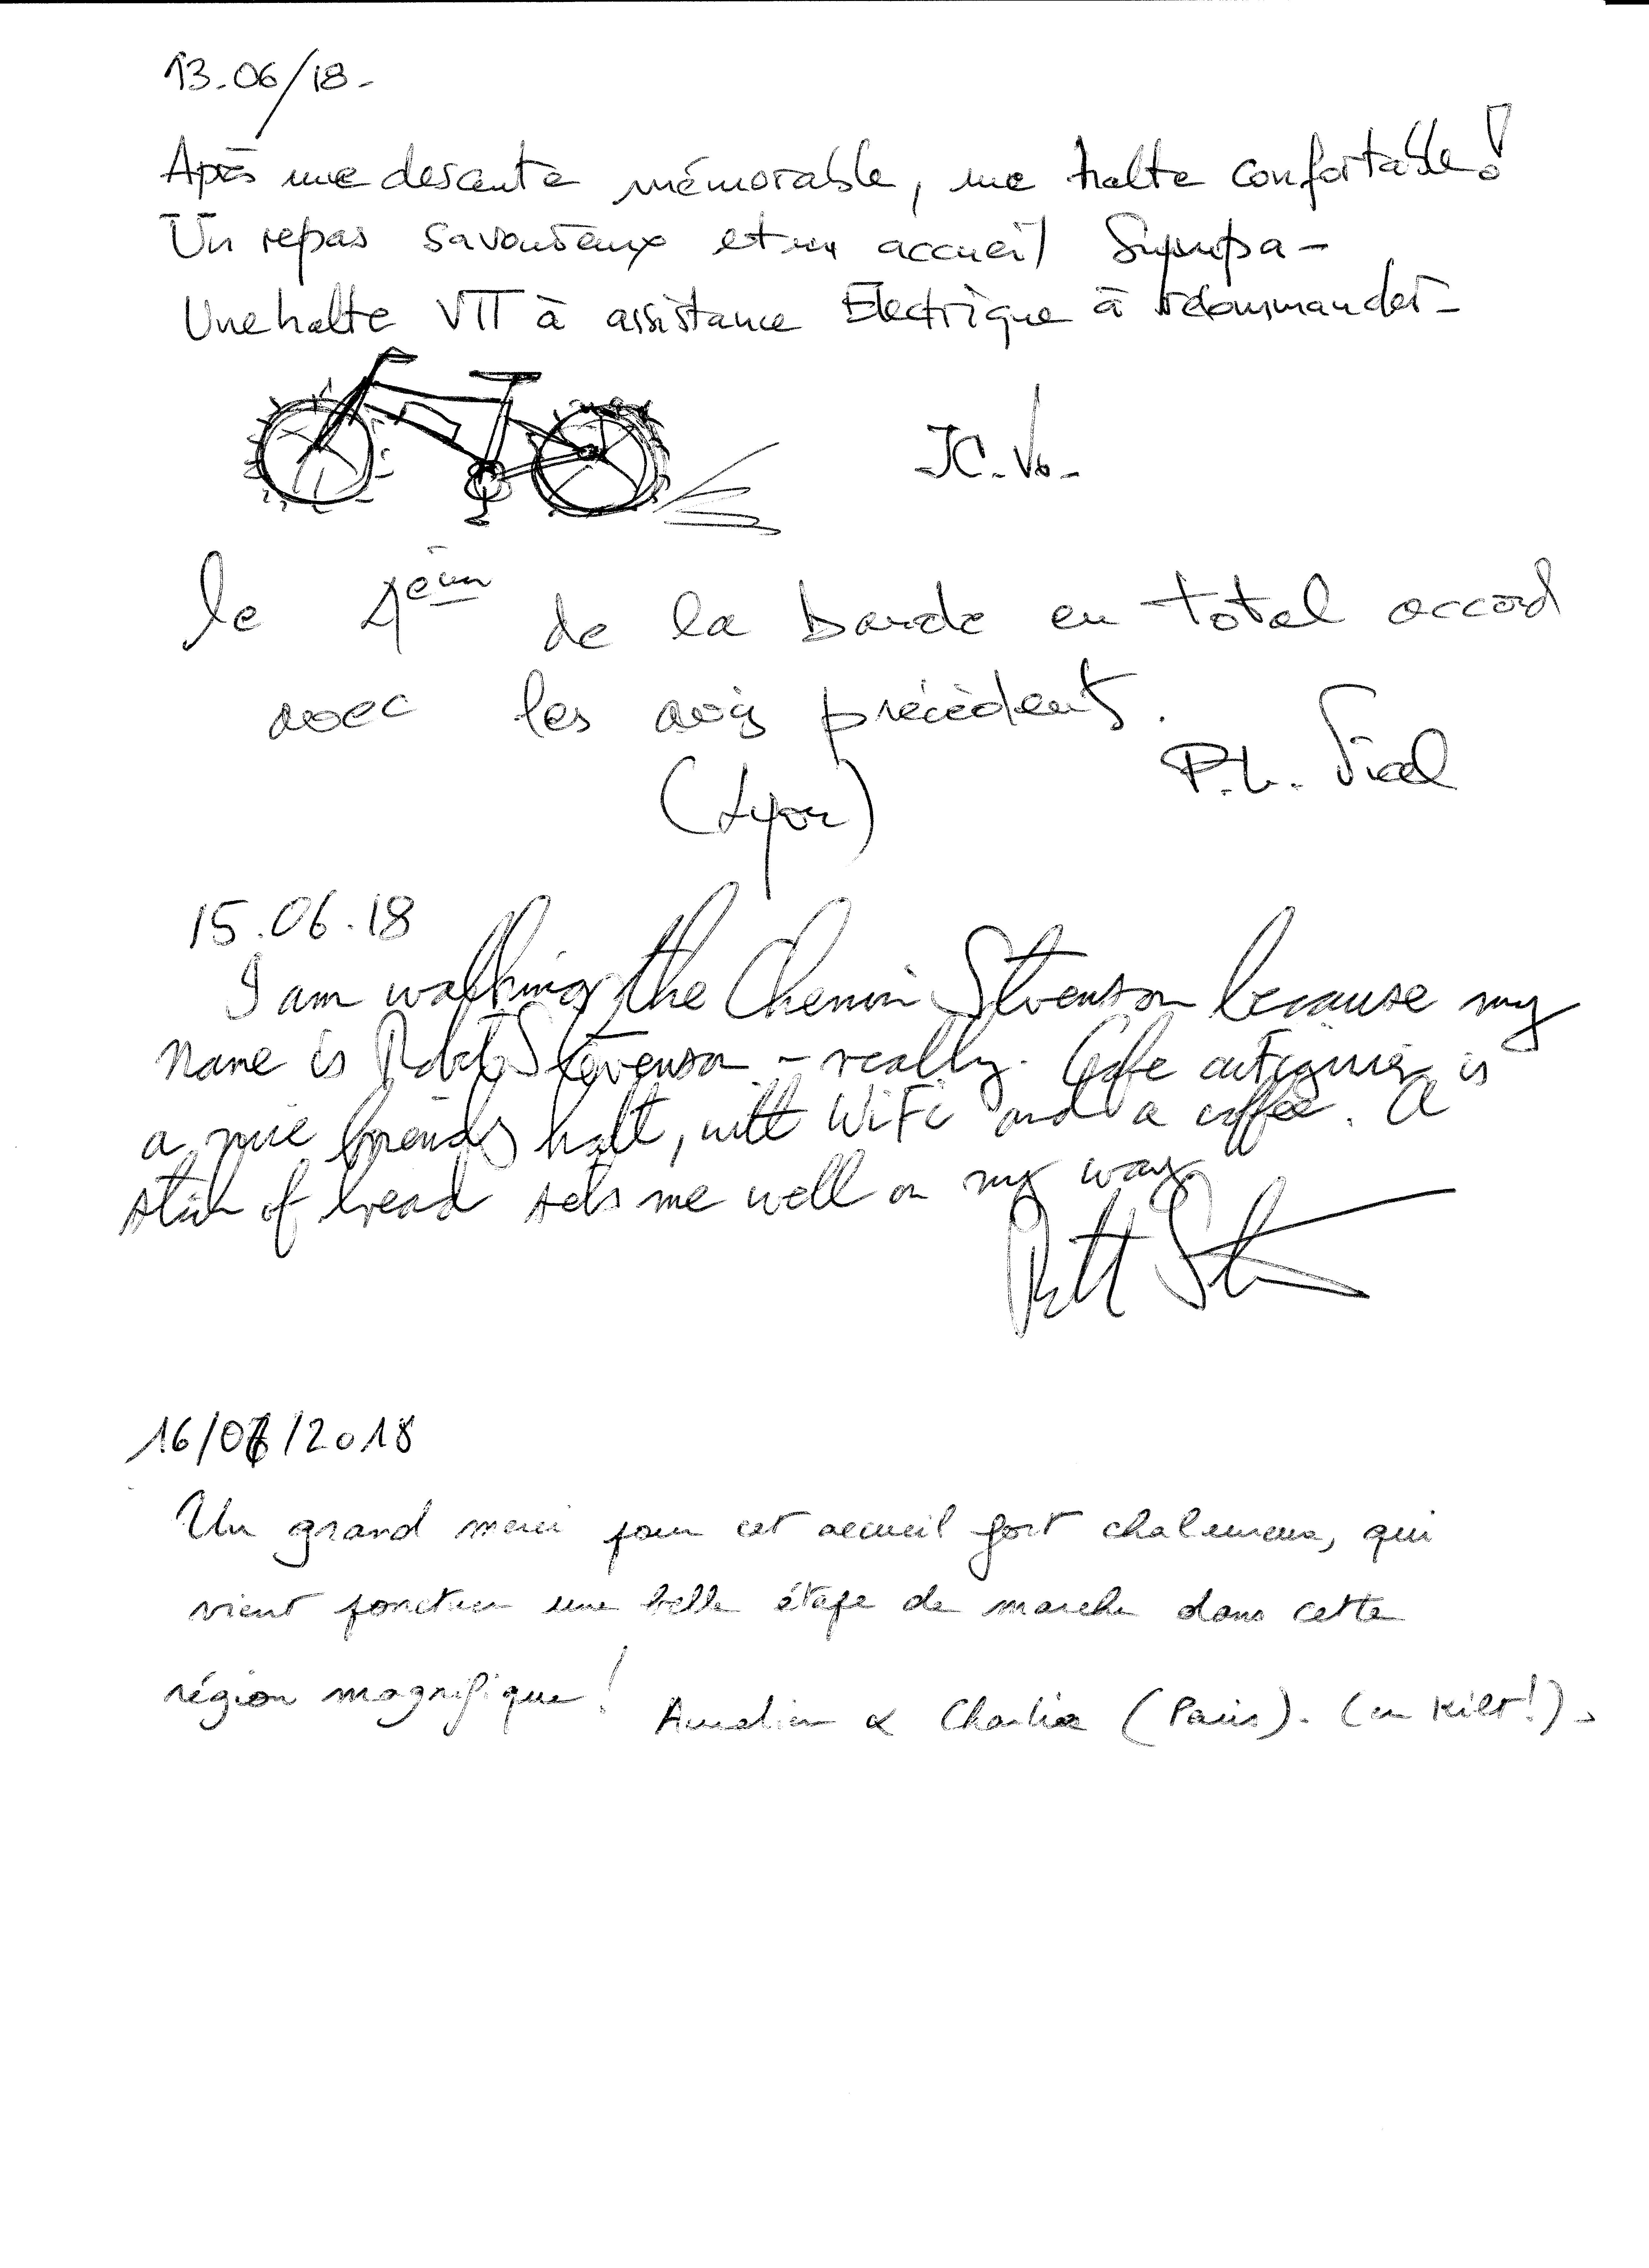 13.06/18-
Après une descente mémorable, une halte confortable!
Un repas savoureux et un accueil Sympa-
Une halte VTT à assistance Electrique à recommander-
JC.Vo-
le 4ème de la bande en total accord
avec les avis précédents.
P.L. Vial
(Lyon)
15.06.18
I am walking the Chemin Stevenson because my
name is Robert Stevenson - really. Cafe is
a nice friendly halt, with WiFi and a coffee. A
stick of bread sets me well on my way
16/06/2018
Un grand merci pour cet accueil fort chaleureux, qui
vient ponctuer une belle étape de marche dans cette
région magnifique!
Aurélien & Charlie (Paris). (en kilt!)-